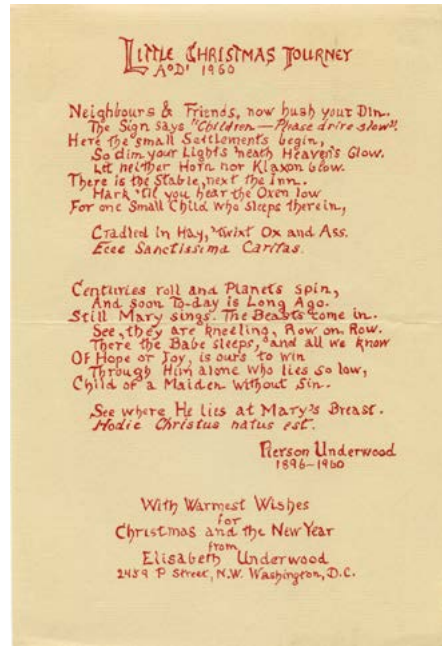 LITTLE CHRISTMAS JOURNEY
A.D. 1960
Neighbours & Friends, now hush your Din.
The Sign says "Children — Please drive slow".
Here the small Settlements begin,
So dim your Lights 'neath Heaven's Glow.
Let neither Horn nor Klaxon blow.
There is the Stable, next the Inn.
Hark 'til you hear the Oxen low
For one Small Child who sleeps therein,
Cradled in Hay, 'twixt Ox and Ass.
Ecce Sanctissima Caritas.
Centuries roll and Planets spin,
And soon To-day is Long Ago.
Still Mary sings. The Beasts come in.
See, they are kneeling, Row on Row.
There the Babe sleeps, and all we know
Of Hope or Joy, is ours to win
Through Him alone who lies so low,
Child of a Maiden without Sin.
See where He lies at Mary's Breast.
Hodie Christus natus est.
Pierson Underwood
1896-1960
With Warmest Wishes
for
Christmas and the New Year
from
Elisabeth Underwood
2489 P Street, N.W. Washington, D.C.